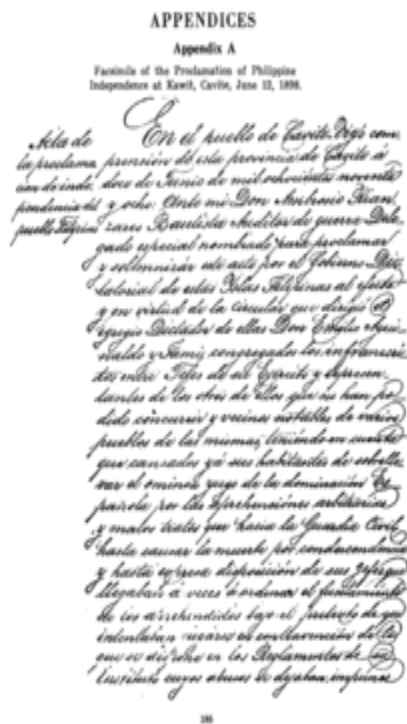 APPENDICES
Appendix A
Facsimile of the Proclamation of Philippine
Independence at Kawit, Cavite, June 12, 1898.
Acta de
la proclama
cion de inde
pendencia del
pueblo Filipino
En el pueblo de Cavite-Viejo com
prension de esta provincia de Cavite á
doce de Junio de mil ochocientos noventa
y ocho: Ante mi Don Ambrosio Rian
zares Bautista Auditor de guerra Dele
gado especial nombrado para proclamar
y solemnizar este acto por el Gobierno Dic
tatorial de estas Islas Filipinas al efecto
y en virtud de la circular que dirigió el
egregio Dictador de ellas Don Emilio Agui
naldo y Famy, congregados los infrascri
tos entre Jefes de su Ejercito y represen
tantes de los otros de ellos que no han po
dido concurrir y vecinos notables de varios
pueblos de las mismas, teniendo en cuenta
que cansados ya sus habitantes de sobrelle
var el ominoso yugo de la dominacion Es
pañola por las aprehensiones arbitrarias
y malos tratos que hacia la Guardia Civil
hasta causar la muerte por condescendencia
y hasta expresa disposicion de sus Jefes que
llegaban a veces a ordenar el fusilamiento
de los aprehendidos bajo el pretexto de que
intentaban en contravencion de lo
que se dispone en los Reglamentos de su
Instituto cuyos abusos se dejaban impunes
185